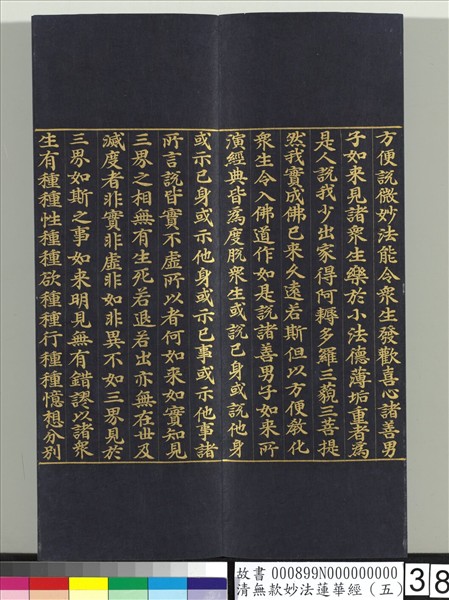 方便說微妙法能令衆生發歡喜心諸善男
子如来見諸衆生樂於小法德薄垢重者為
是人說我少出家得阿耨多羅三藐三菩提
然我實成佛已来久遠若斯但以方便教化
衆生令入佛道作如是說諸善男子如来所
演經典皆為度脫衆生或說已身或說他身
或示已身或示他身或示已事或示他事諸
所言說皆實不虛所以者何如来如實知見
三界之相無有生死若退若出亦無在世及
滅度者非實非虛非如非異不如三界見於
三界如斯之事如来明見無有錯謬以諸衆
生有種種性種種欲種種行種種憶想分別
故書 000899N000000000
清無款妙法蓮華經（五）
38